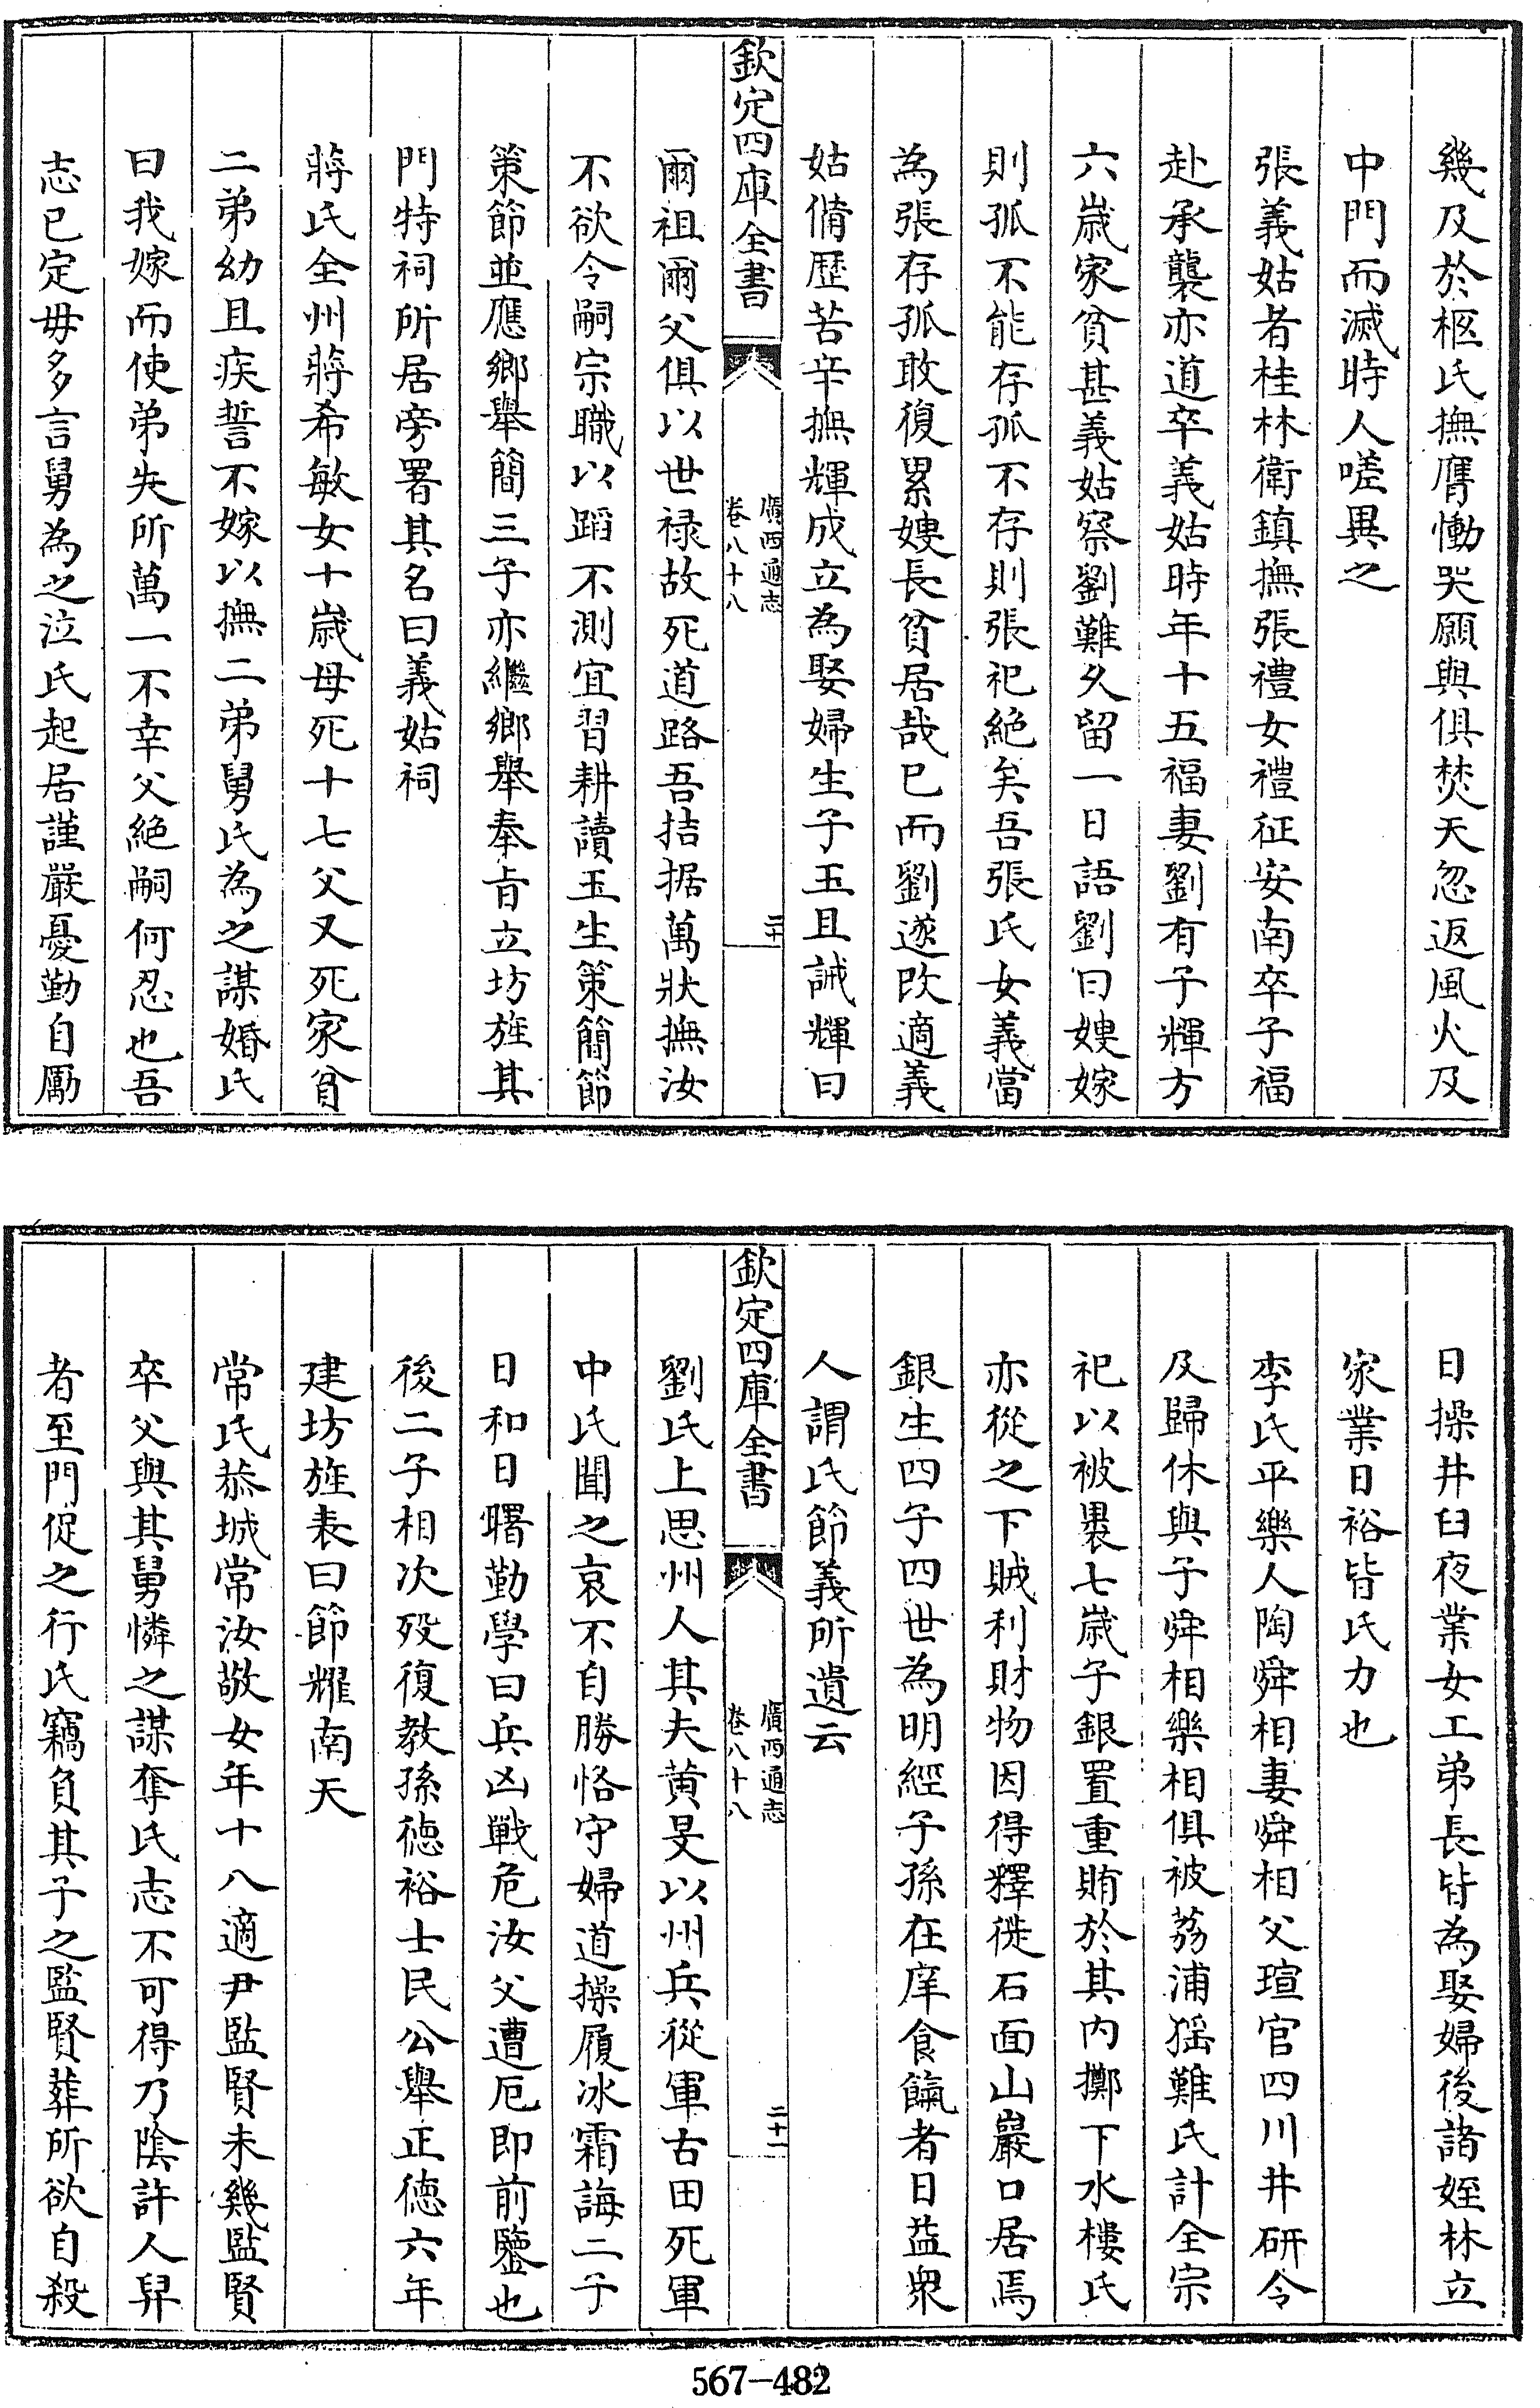 幾及於柩氏撫膺慟哭願與俱焚天忽返風火及
中門而滅時人嗟異之
張義姑者桂林衛鎮撫張禮女禮征安南卒子福
赴承襲亦道卒義姑時年十五福妻劉有子輝方
六歲家貧甚義姑察劉難久留一日語劉曰嫂嫁
則孤不能存孤不存則張祀絶矣吾張氏女義當
為張存孤敢復累嫂長貧居哉已而劉遂改適義
姑備歷苦辛撫輝成立為娶婦生子玉且誡輝曰
欽定四庫全書
廣西通志
卷八十八
二十
爾祖爾父俱以世禄故死道路吾拮据萬狀撫汝
不欲令嗣宗職以蹈不測宜習耕讀玉生策簡節
策節並應鄉舉簡三子亦繼鄉舉奉旨立坊旌其
門特祠所居旁署其名曰義姑祠
蔣氏全州蔣希敏女十歲母死十七父又死家貧
二弟幼且疾誓不嫁以撫二弟舅氏為之謀婚氏
曰我嫁而使弟失所萬一不幸父絶嗣何忍也吾
志已定毋多言舅為之泣氏起居謹嚴憂勤自勵
日操井臼夜業女工弟長皆為娶婦後諸姪林立
家業日裕皆氏力也
李氏平樂人陶舜相妻舜相父瑄官四川井研令
及歸休與子舜相樂相俱被荔浦猺難氏計全宗
祀以被裹七歲子銀置重賄於其内擲下水樓氏
亦從之下賊利財物因得釋徙石面山巖口居焉
銀生四子四世為明經子孫在庠食餼者日益衆
人謂氏節義所遺云
欽定四庫全書
廣西通志
卷八十八
二十一
劉氏上思州人其夫黄旻以州兵從軍古田死軍
中氏聞之哀不自勝恪守婦道操履冰霜誨二子
日和日曙勤學曰兵凶戰危汝父遭厄即前鑒也
後二子相次歿復教孫德裕士民公舉正德六年
建坊旌表曰節耀南天
常氏恭城常汝敬女年十八適尹監賢未幾監賢
卒父與其舅憐之謀奪氏志不可得乃陰許人舁
者至門促之行氏竊負其子之監賢葬所欲自殺
567—482